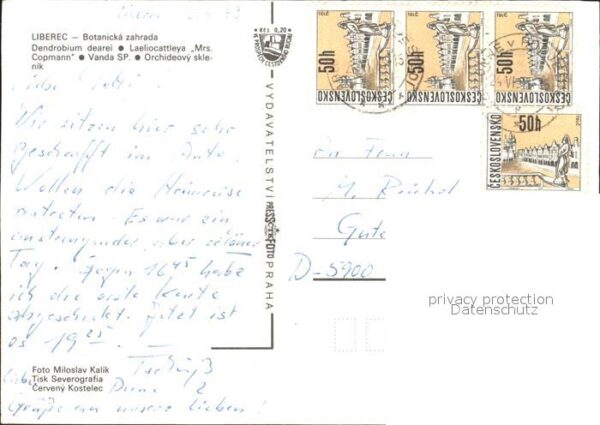 Liberec
LIBEREC – Botanická zahrada
Dendrobium dearei ● Laeliocattleya „Mrs.
Copmann" ● Vanda SP. ● Orchideový skle-
ník
Kčs 0,20
Wir sitzen hier sehr
geschafft im Auto.
Wollen die Heimreise
antreten. Es war ein
anstrengender aber schöner
Tag. Gegen 16 45 habe
ich die erste Karte
abgeschickt. Jetzt ist
es 19 25.
Foto Miloslav Kalík
Tisk Severografia
Červený Kostelec
Grüße an unsere Lieben!
VYDAVATELSTVÍ PRESSFOTO PRAHA
TELČ
50h
ČESKOSLOVENSKO
TELČ
50h
ČESKOSLOVENSKO
TELČ
50h
ČESKOSLOVENSKO
50h
ČESKOSLOVENSKO
TELČ
An Frau
M.
D-5900
privacy protection
Datenschutz